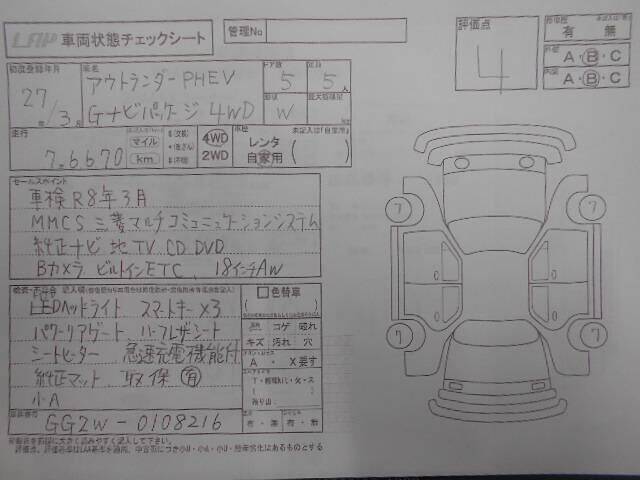 LAA 車両状態チェックシート
管理No
評価点
4
有 無
外装
A・B・C
内装
A・B・C
初度登録年月
27年/3月
車名
アウトランダーPHEV
Gナビパッケージ 4WD
ドア数
5
定員
5人
形状
W
最大積載量
kg
走行
7,6670
マイル
km
4WD
2WD
車歴
レンタ
自家用
未記入は「自家用」
セールスポイント
車検 R8年3月
MMCS 三菱マルチコミュニケーションシステム
純正ナビ 地TV CD DVD
Bカメラ ビルトインETC、18インチAW
LEDヘッドライト スマートキー×3
パワーリアゲート ハーフレザーシート
シートヒーター 急速充電機能付
純正マット 取保 有
小A
色替車
コゲ 破れ
キズ 汚れ 穴
A・ X要す
車台番号
GG2W-0108216
有・無 有・無
7
7
7
7
※車両を前提に大きく読みやすく記入して下さい。